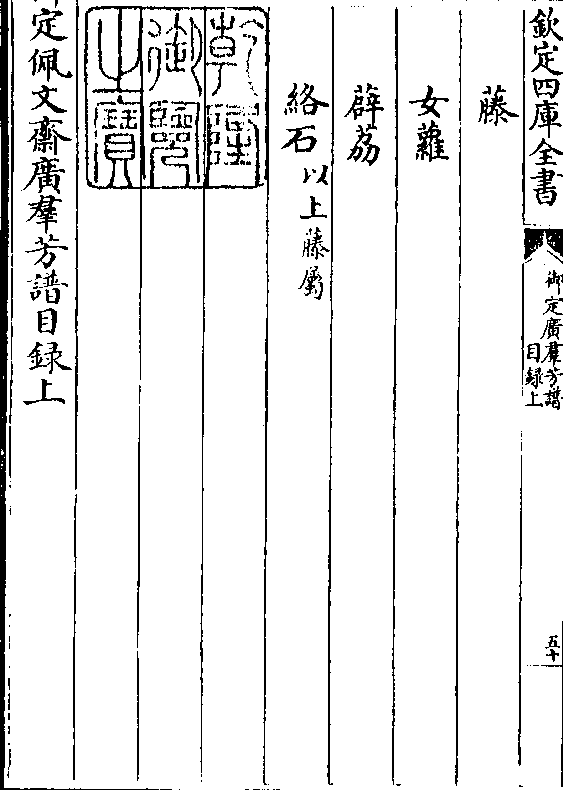 欽定四庫全書
御定廣羣芳譜
目録上
五十
藤
女蘿
薜荔
絡石以上藤屬
乾隆
御覽
之寶
定佩文齋廣羣芳譜目録上